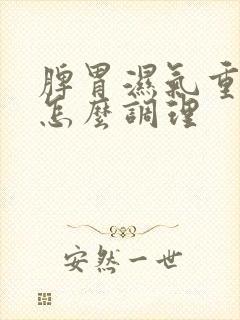 脾胃濕氣重
怎麼調理
安然一世